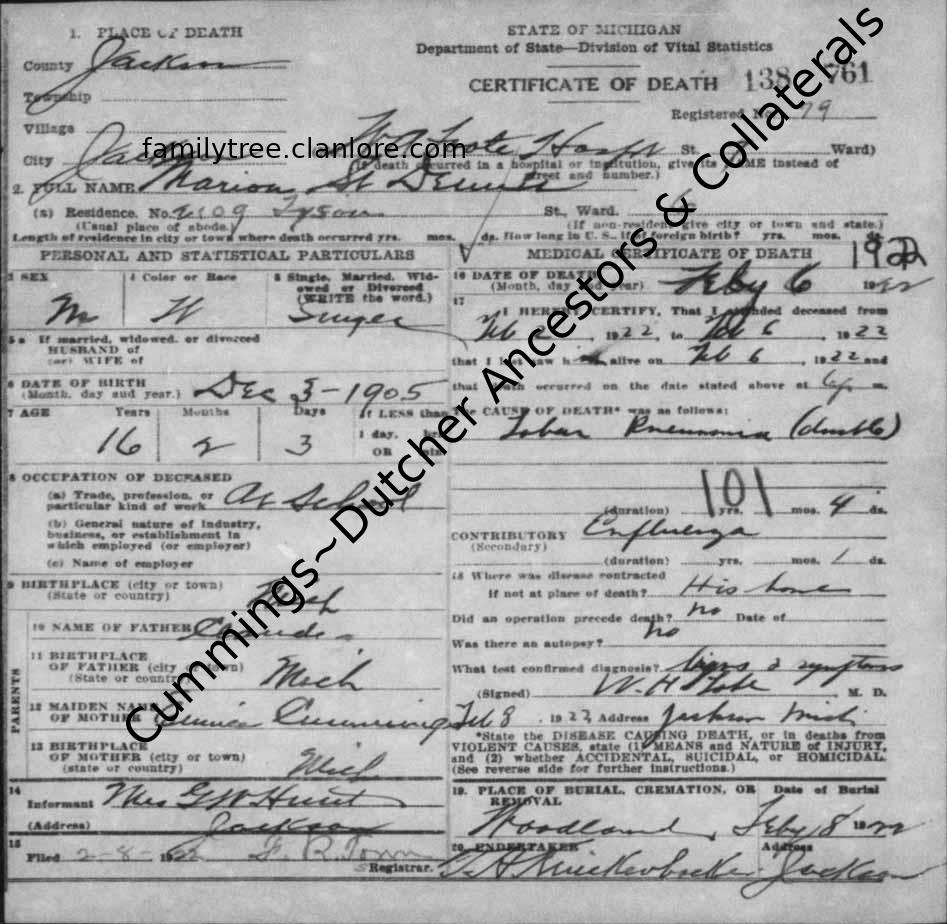 1. PLACE OF DEATH
County Jackson
Township
Village
City Jackson
STATE OF MICHIGAN
Department of State—Division of Vital Statistics
CERTIFICATE OF DEATH 138 761
Registered No. 79
W A Foote Hosp St. Ward)
(If death occurred in a hospital or institution, give its NAME instead of street and number.)
familytree.clanlore.com
Cummings~Dutcher Ancestors & Collaterals
2. FULL NAME Marion St
(a) Residence. No. Tyson St., Ward.
(Usual place of abode.) (If non-resident give city or town and state.)
Length of residence in city or town where death occurred yrs. mos. ds. How long in U. S., if of foreign birth? yrs. mos. ds.
PERSONAL AND STATISTICAL PARTICULARS
3 SEX M
4 Color or Race W
5 Single, Married, Widowed or Divorced (WRITE the word.)
5a If married, widowed, or divorced
HUSBAND of
(or) WIFE of
6 DATE OF BIRTH
(Month, day and year.) Dec 3 - 1905
7 AGE Years Months Days If LESS than
16 2 3
1 day, hrs
OR min
8 OCCUPATION OF DECEASED
(a) Trade, profession, or
particular kind of work At School
(b) General nature of industry,
business, or establishment in
which employed (or employer)
(c) Name of employer
9 BIRTHPLACE (city or town)
(State or country) Mich
PARENTS
10 NAME OF FATHER Claude
11 BIRTHPLACE
OF FATHER (city or town)
(State or country) Mich
12 MAIDEN NAME
OF MOTHER Cummings
13 BIRTHPLACE
OF MOTHER (city or town)
(state or country) Mich
14
Informant Mrs G W Hunt
(Address) Jackson
15
Filed 2-8-1922 F. R. Town
Registrar.
MEDICAL CERTIFICATE OF DEATH 1922
16 DATE OF DEATH
(Month, day and year) Feby 6 1922
17
I HEREBY CERTIFY, That I attended deceased from
Feb 1922, to Feb 6 1922
that I last saw him alive on Feb 6 1922 and
that death occurred on the date stated above at m.
The CAUSE OF DEATH* was as follows:
Lobar Pneumonia (double)
101
(duration) yrs. mos. 4 ds.
CONTRIBUTORY Enfluenza
(Secondary)
(duration) yrs. mos. 1 ds.
18 Where was disease contracted
if not at place of death? His home
Did an operation precede death? no Date of
Was there an autopsy? no
What test confirmed diagnosis? Signs & symptoms
(Signed) W. H. M. D.
Feb 8, 1922, Address Jackson Mich
*State the DISEASE CAUSING DEATH, or in deaths from
VIOLENT CAUSES, state (1) MEANS and NATURE of INJURY,
and (2) whether ACCIDENTAL, SUICIDAL, or HOMICIDAL.
(See reverse side for further instructions.)
19. PLACE OF BURIAL, CREMATION, OR REMOVAL Date of Burial
Woodland, Feby 8 1922
20. UNDERTAKER Address
Knickerbocker Jackson